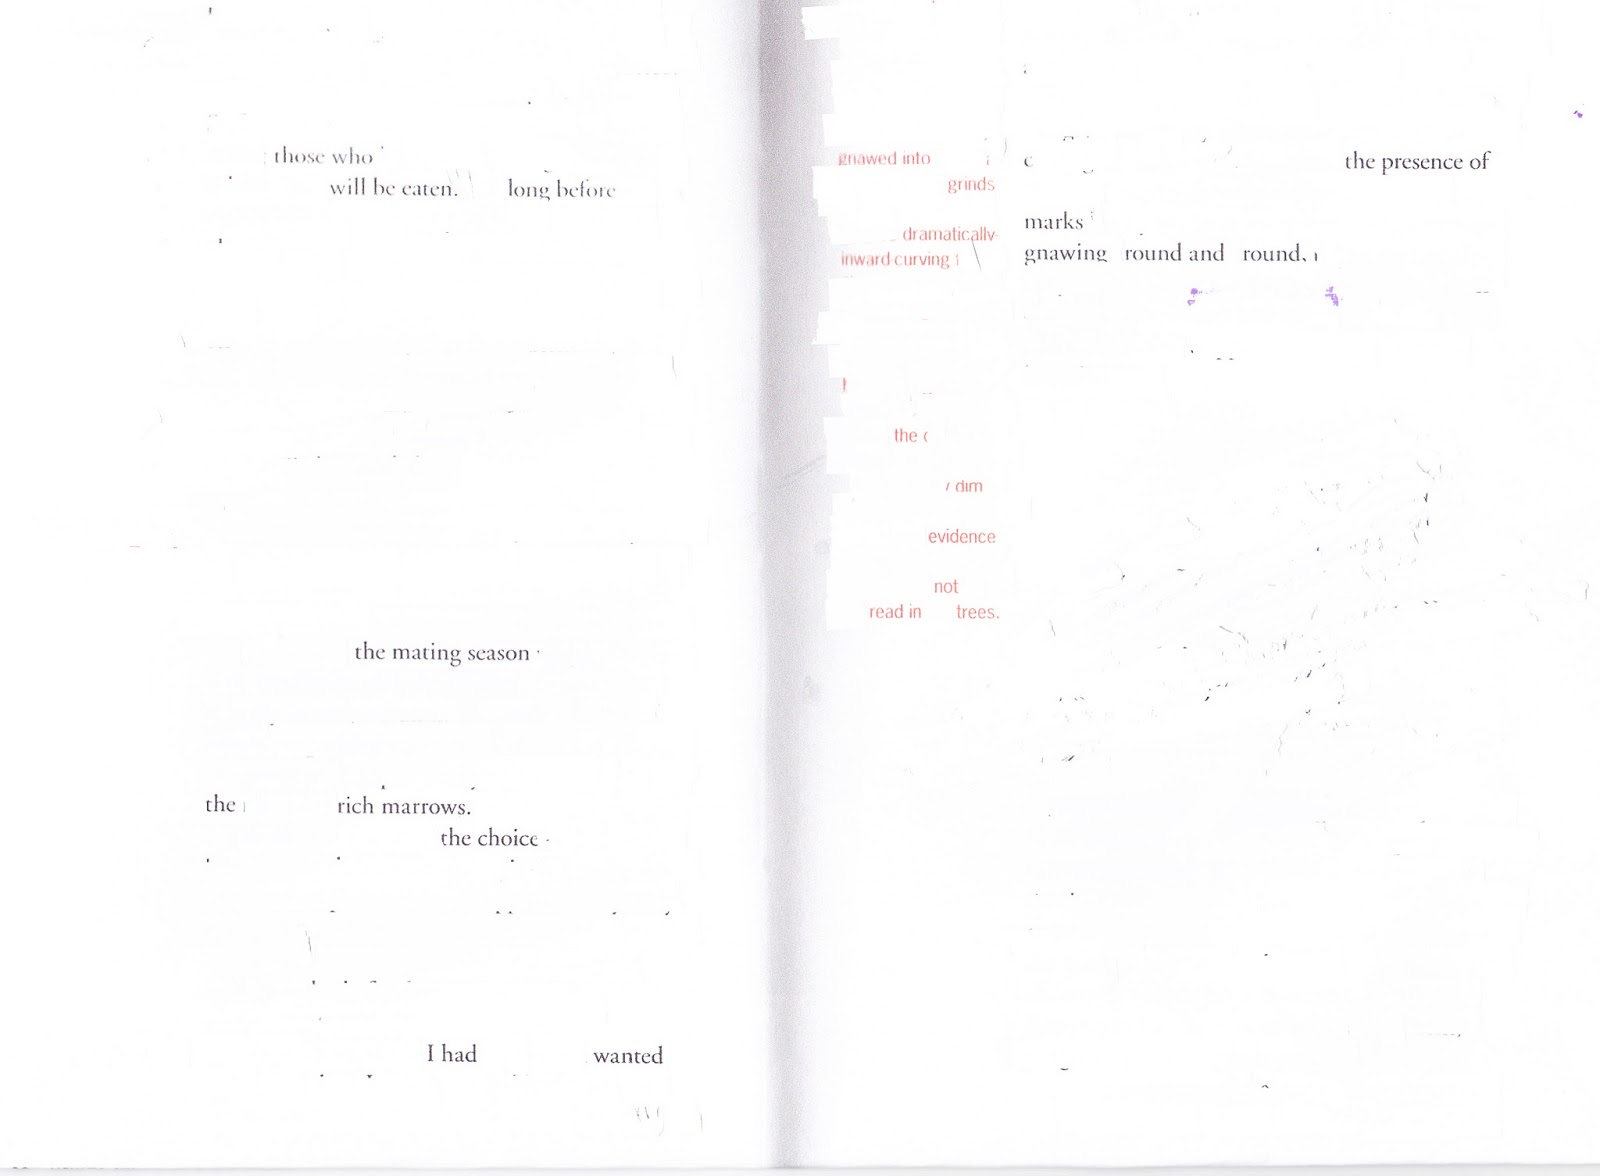 those who
will be eaten. long before
the mating season
the rich marrows.
the choice
I had wanted
gnawed into
grinds
dramatically-
inward curving
the
dim
evidence
not
read in trees.
the presence of
marks
gnawing round and round,